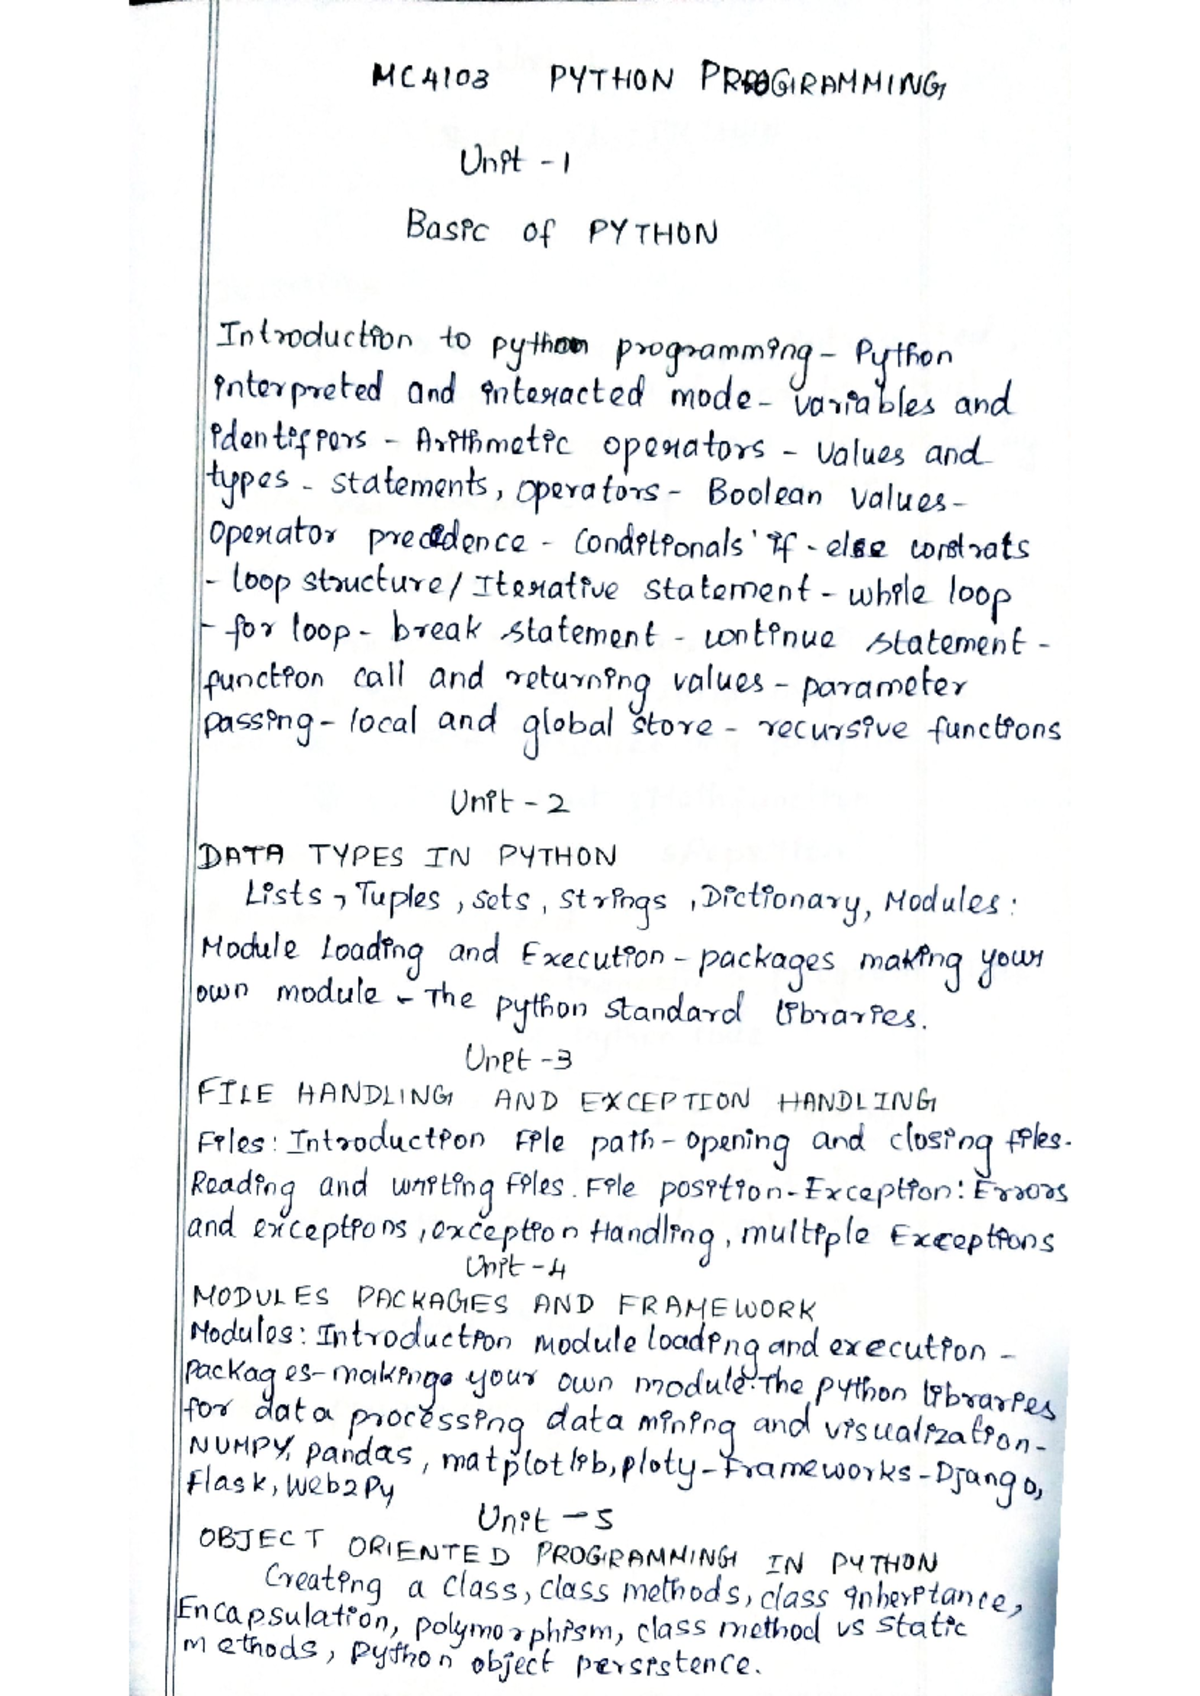 MC4103 PYTHON PROGRAMMING
Unit - 1
Basic of PYTHON
Introduction to python programming - Python
interpreted and interacted mode - variables and
identifiers - Arithmetic operators - Values and
types - statements, operators - Boolean values -
Operator precedence - Conditionals' if - else constrats
- loop structure / Iterative statement - while loop
- for loop - break statement - continue statement -
function call and returning values - parameter
passing - local and global store - recursive functions
Unit - 2
DATA TYPES IN PYTHON
Lists, Tuples, sets, strings, Dictionary, Modules:
Module Loading and Execution - packages making your
own module - The python standard libraries.
Unit - 3
FILE HANDLING AND EXCEPTION HANDLING
Files: Introduction File path - opening and closing files.
Reading and writing files. File position - Exception: Errors
and exceptions, exception Handling, multiple Exceptions
Unit - 4
MODULES PACKAGES AND FRAMEWORK
Modules: Introduction module loading and execution -
packages - making your own module. The python libraries
for data processing data mining and visualization -
NUMPY, pandas, matplotlib, ploty - Frameworks - Django,
Flask, Web2Py
Unit - 5
OBJECT ORIENTED PROGRAMMING IN PYTHON
Creating a class, class methods, class inheritance,
Encapsulation, polymorphism, class method vs static
methods, python object persistence.